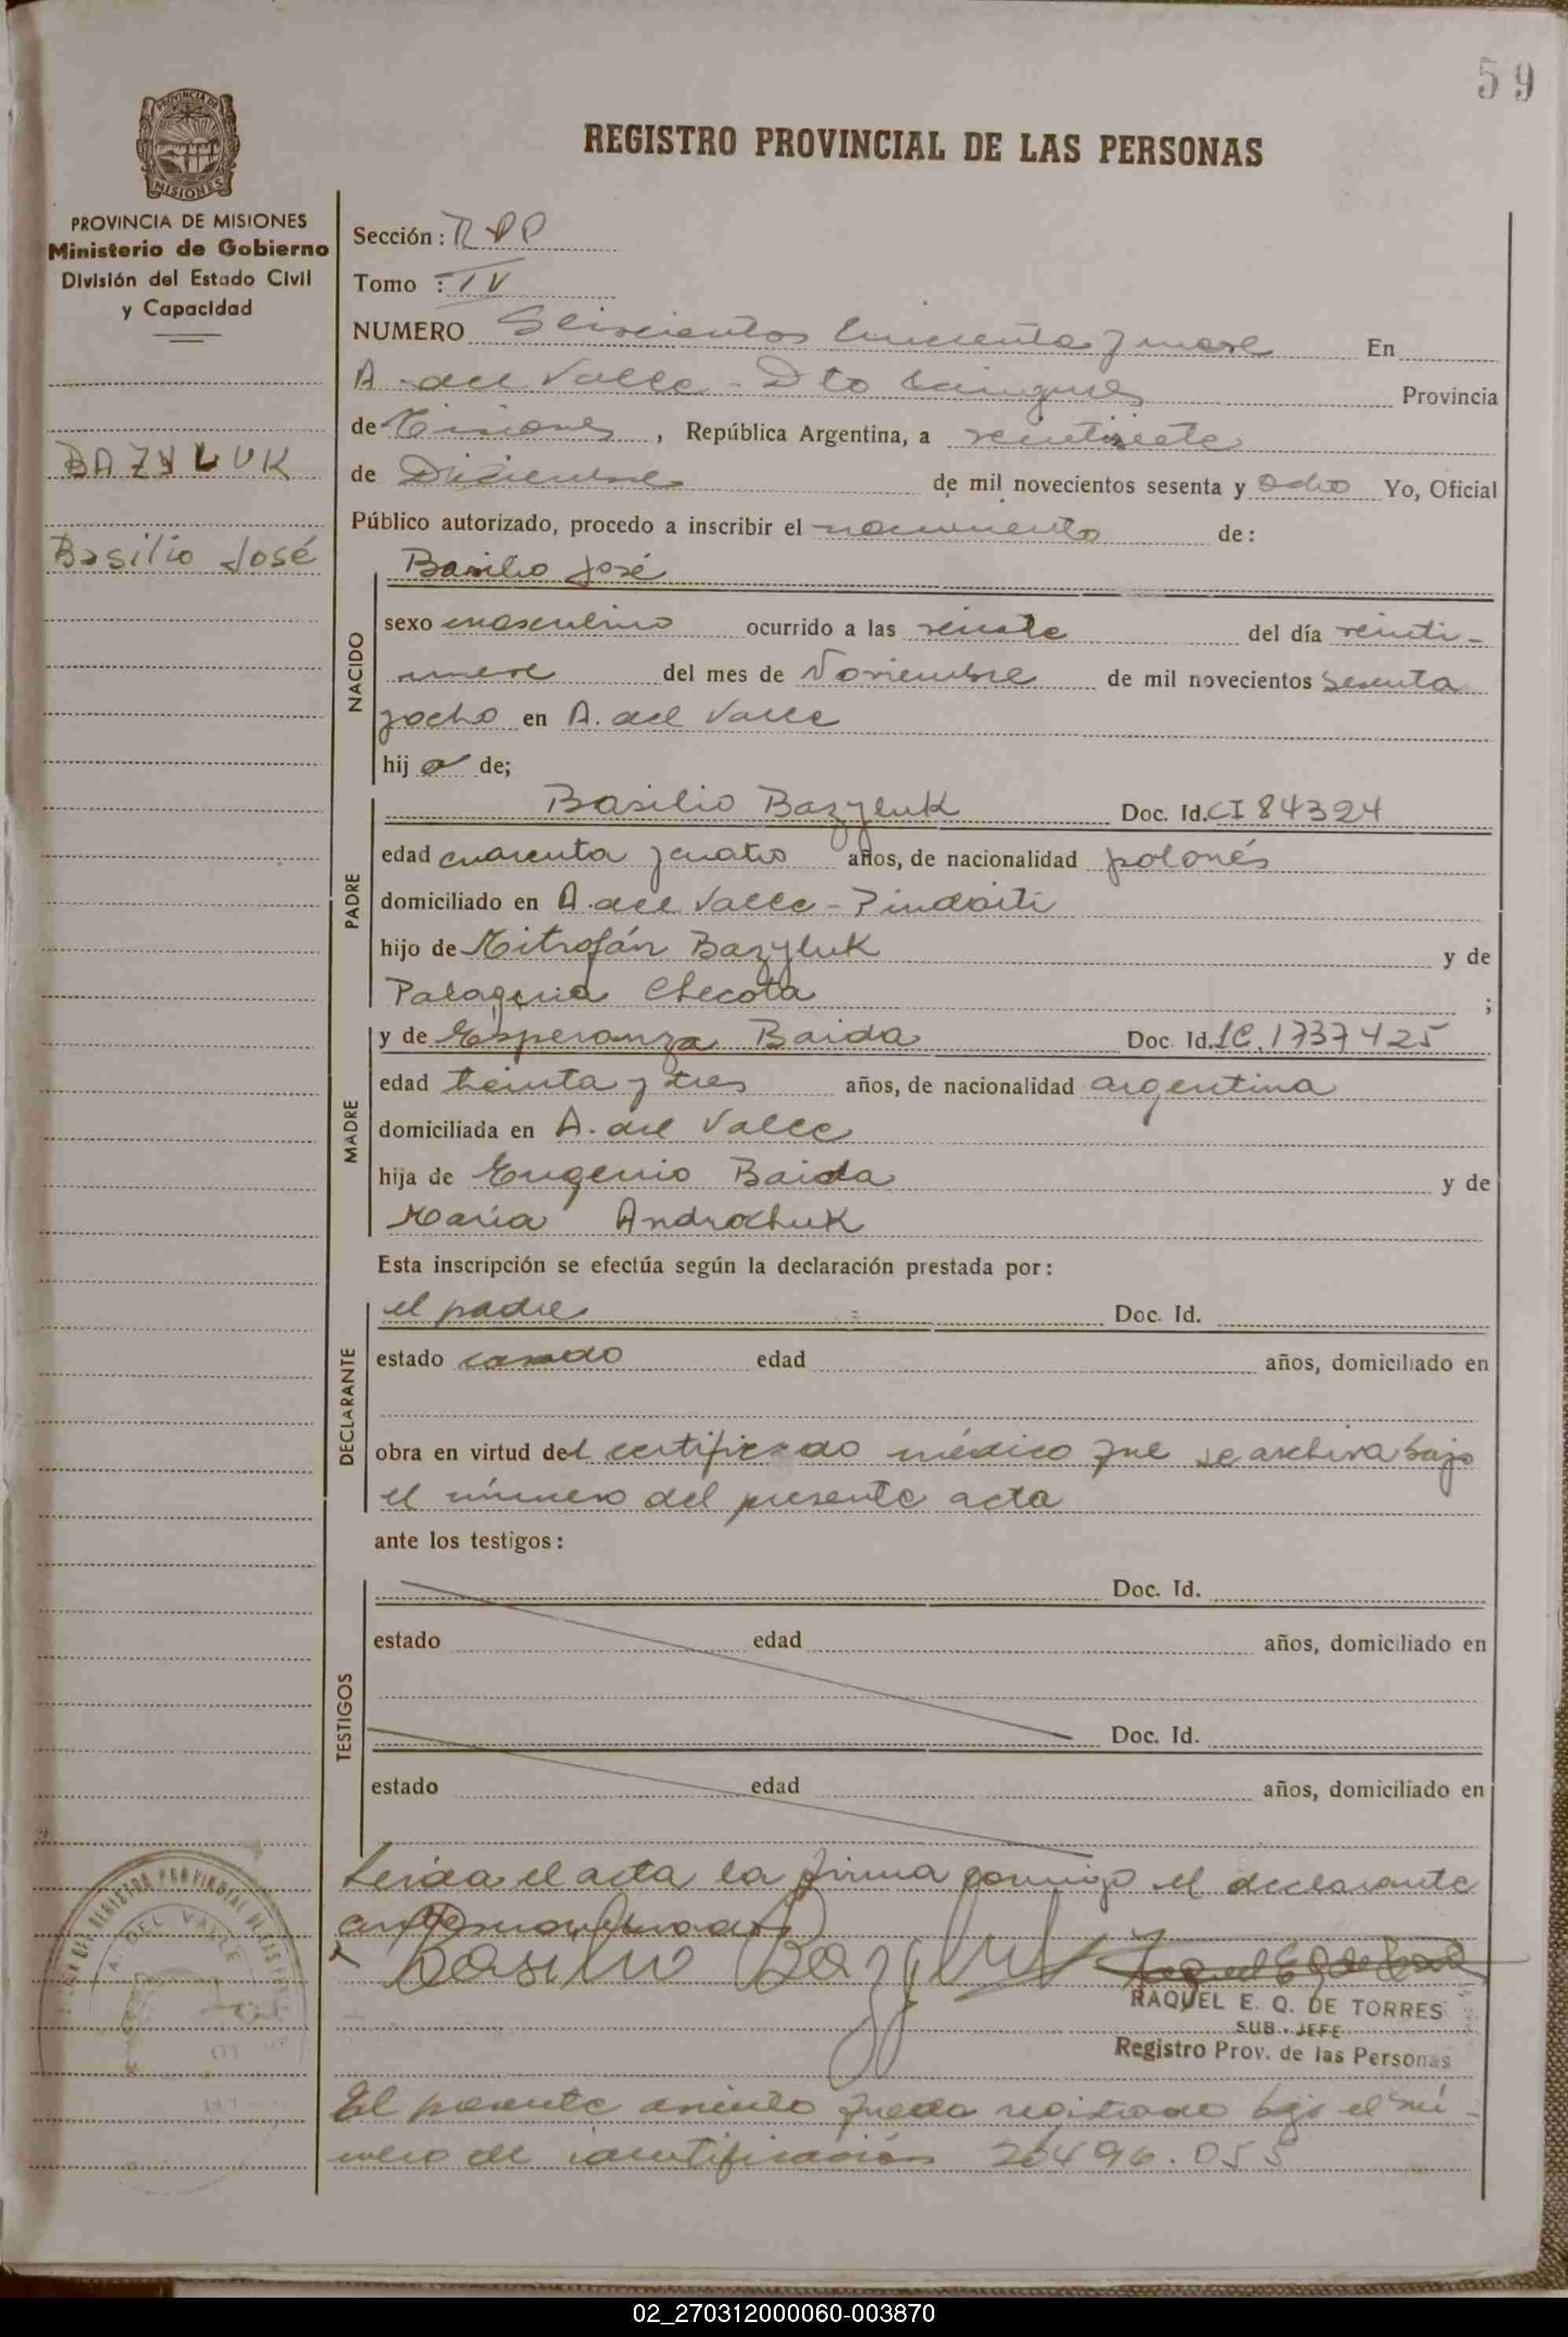 59
PROVINCIA DE
MISIONES
REGISTRO PROVINCIAL DE LAS PERSONAS
PROVINCIA DE MISIONES
Ministerio de Gobierno
División del Estado Civil
y Capacidad
BAZYLUK
Basilio José
Sección: RPP
Tomo : IV
NUMERO Seiscientos cincuenta y nueve En
A. del Valle - Dto Cainguas Provincia
de Misiones, República Argentina, a veintisiete
de Diciembre de mil novecientos sesenta y ocho Yo, Oficial
Público autorizado, procedo a inscribir el nacimiento de:
Basilio José
NACIDO
sexo masculino ocurrido a las veinte del día veinti-
nueve del mes de Noviembre de mil novecientos sesenta
y ocho en A. del Valle
hijo de;
PADRE
Basilio Bazyluk Doc. Id. CI 84324
edad cuarenta y cuatro años, de nacionalidad polonés
domiciliado en A. del Valle - Pindaiti
hijo de Mitrofán Bazyluk y de
Palagenia Checota ;
MADRE
y de Esperanza Baida Doc. Id. LC. 1737425
edad treinta y tres años, de nacionalidad argentina
domiciliada en A. del Valle
hija de Eugenio Baida y de
María Androchuk
Esta inscripción se efectúa según la declaración prestada por:
DECLARANTE
el padre Doc. Id.
estado casado edad años, domiciliado en
obra en virtud del certificado médico que se archiva bajo
el número del presente acta
ante los testigos:
TESTIGOS
Doc. Id.
estado edad años, domiciliado en
Doc. Id.
estado edad años, domiciliado en
Leida el acta la firma conmigo el declarante
Basilio Bazyluk
RAQUEL E. Q. DE TORRES
SUB - JEFE
Registro Prov. de las Personas
REGISTRO PROVINCIAL DE LAS
A. DEL VALLE
El presente asiento queda registrado bajo el nú-
mero de identificación 20496.055
02_270312000060-003870